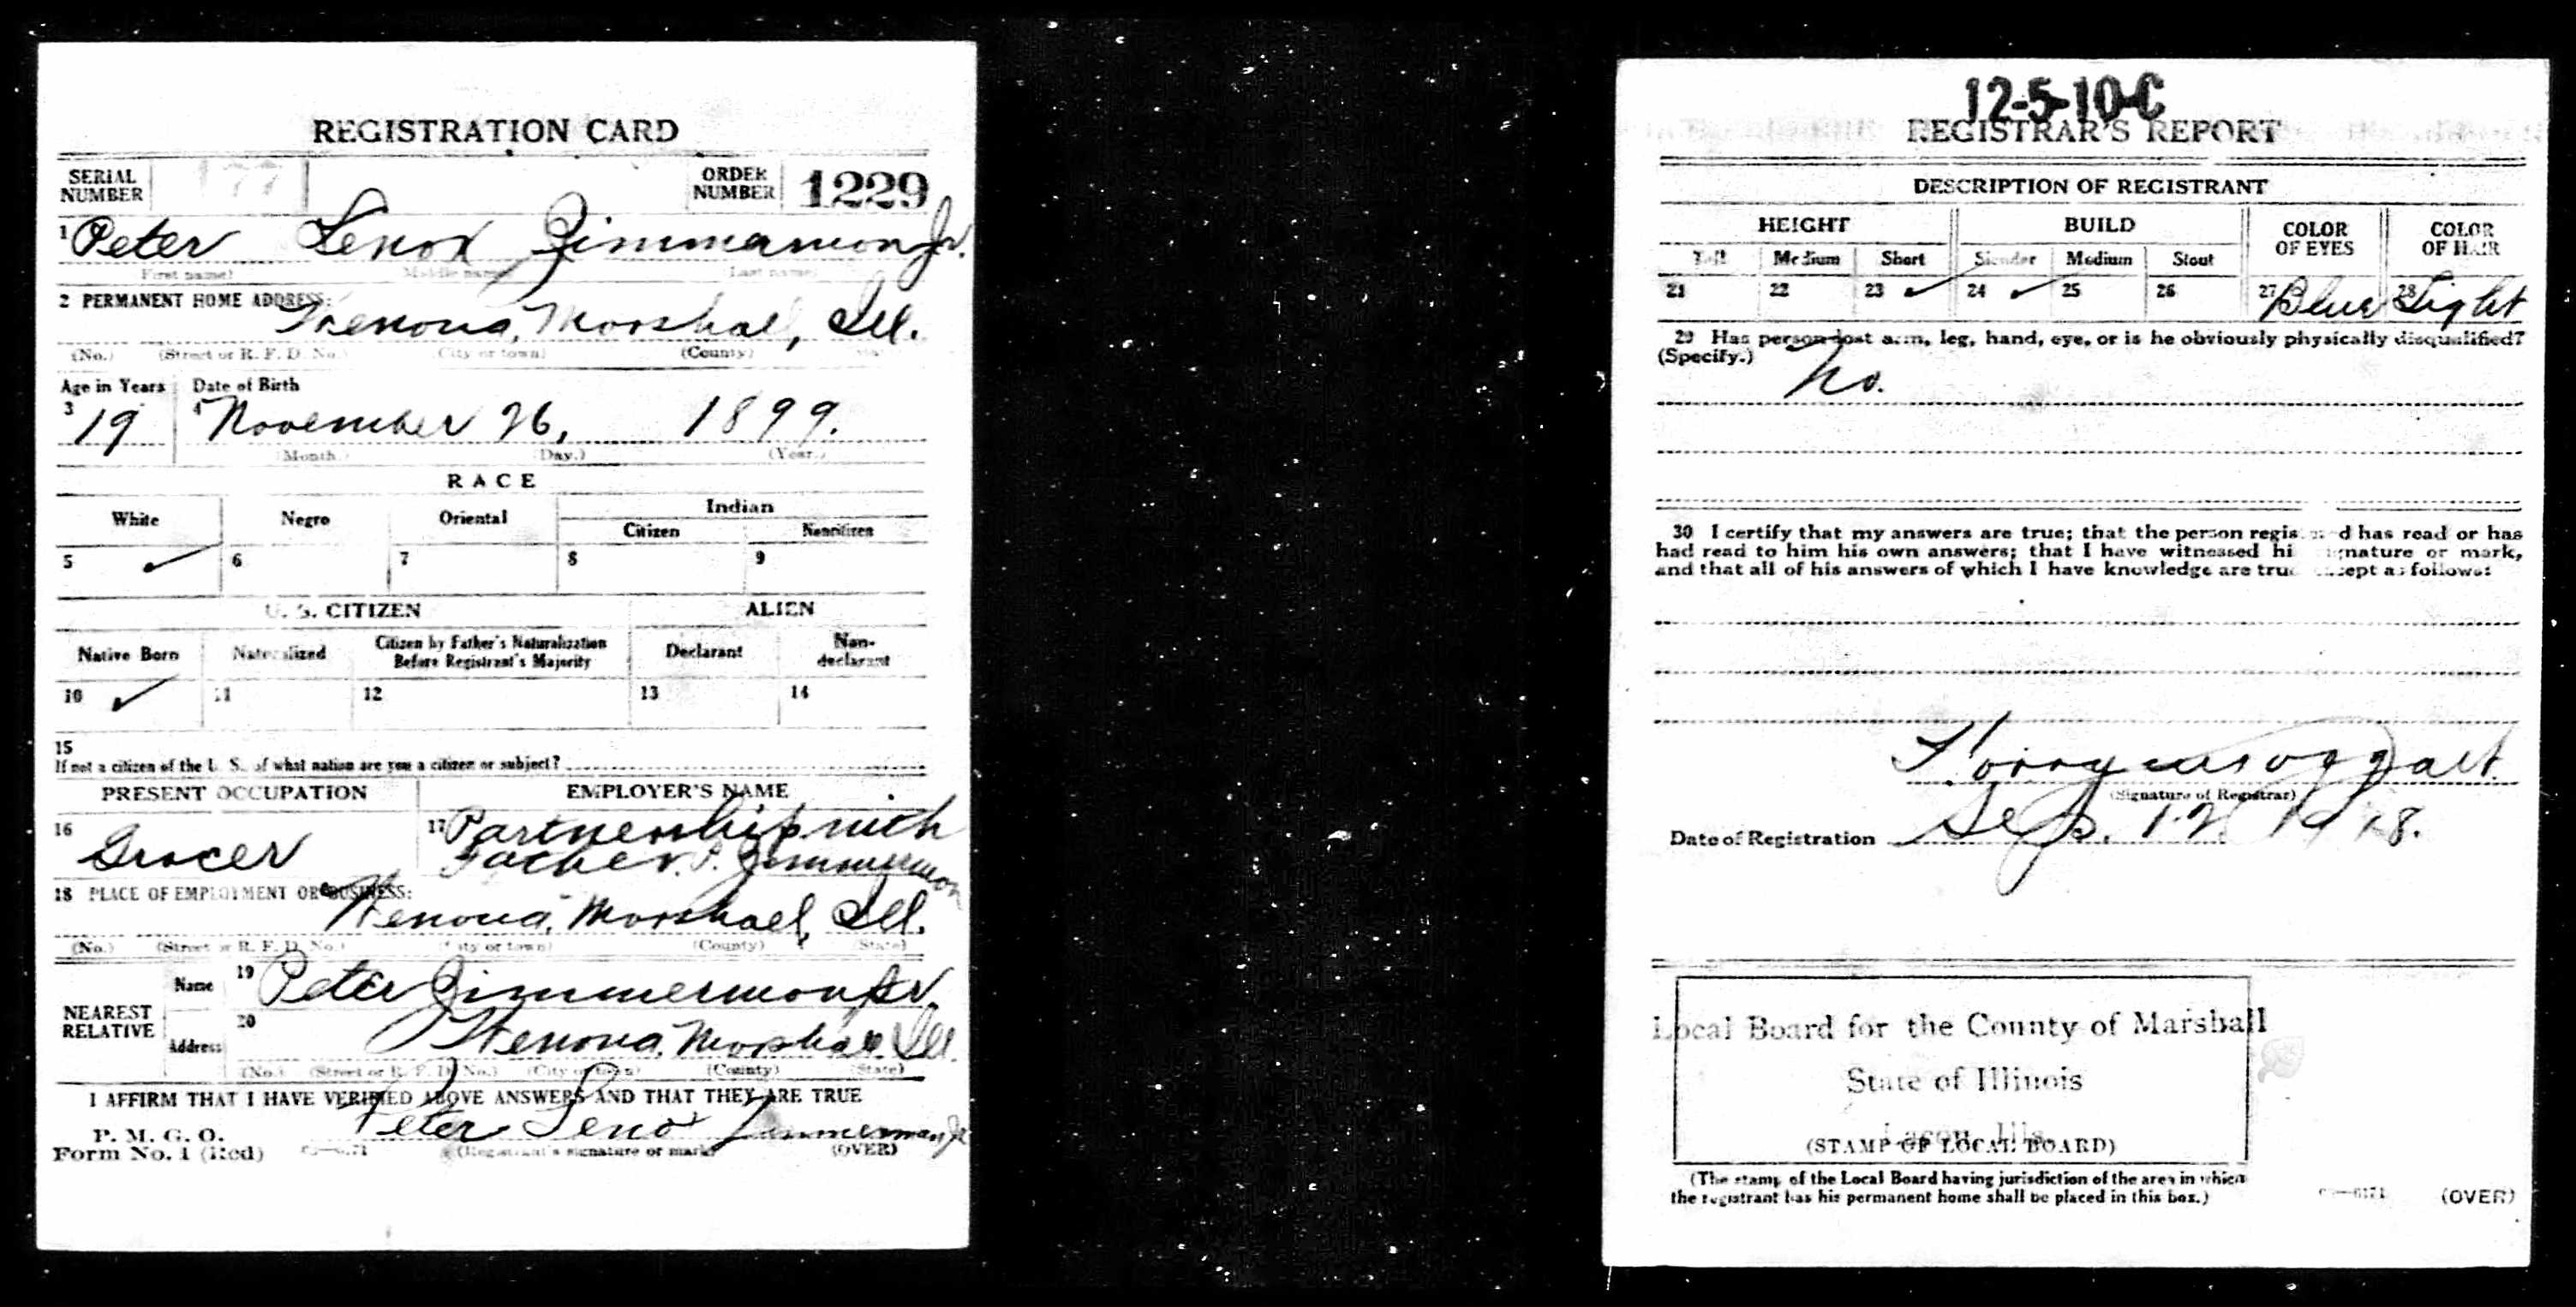 REGISTRATION CARD
SERIAL NUMBER 177 ORDER NUMBER 1229
1 Peter Lenox Zimmerman Jr.
(First name) (Middle name) (Last name)
2 PERMANENT HOME ADDRESS:
Wenona, Marshal, Ill.
(No.) (Street or R. F. D. No.) (City or town) (County)
Age in Years Date of Birth
3 19 4 November 26, 1899.
(Month.) (Day.) (Year.)
RACE
White Negro Oriental Indian
Citizen Noncitizen
5 ✓ 6 7 8 9
U. S. CITIZEN ALIEN
Native Born Naturalized Citizen by Father's Naturalization Before Registrant's Majority Declarant Non-declarant
10 ✓ 11 12 13 14
15
If not a citizen of the U. S. of what nation are you a citizen or subject?
PRESENT OCCUPATION EMPLOYER'S NAME
16 Grocer 17 Partnership with
Father. P. Zimmerman
18 PLACE OF EMPLOYMENT OR BUSINESS:
Wenona, Marshall, Ill.
(No.) (Street or R. F. D. No.) (City or town) (County) (State)
NEAREST RELATIVE
Name 19 Peter Zimmerman Sr.
Address 20 Wenona, Marshall Ill.
(No.) (Street or R. F. D. No.) (City or town) (County) (State)
I AFFIRM THAT I HAVE VERIFIED ABOVE ANSWERS AND THAT THEY ARE TRUE
P. M. G. O.
Form No. 1 (Red)
Peter Leno Zimmerman Jr
(Registrant's signature or mark) (OVER)
12-5-10-C
REGISTRAR'S REPORT
DESCRIPTION OF REGISTRANT
HEIGHT BUILD COLOR OF EYES COLOR OF HAIR
Tall Medium Short Slender Medium Stout
21 22 23 ✓ 24 ✓ 25 26 27 Blue 28 Light
29 Has person lost arm, leg, hand, eye, or is he obviously physically disqualified?
(Specify.) No.
30 I certify that my answers are true; that the person registered has read or has
had read to him his own answers; that I have witnessed his signature or mark,
and that all of his answers of which I have knowledge are true except as follows:
(Signature of Registrar)
Date of Registration Sep. 12. 1918.
Local Board for the County of Marshall
State of Illinois
Lacon, Ills.
(STAMP OF LOCAL BOARD)
(The stamp of the Local Board having jurisdiction of the area in which
the registrant has his permanent home shall be placed in this box.)
(OVER)